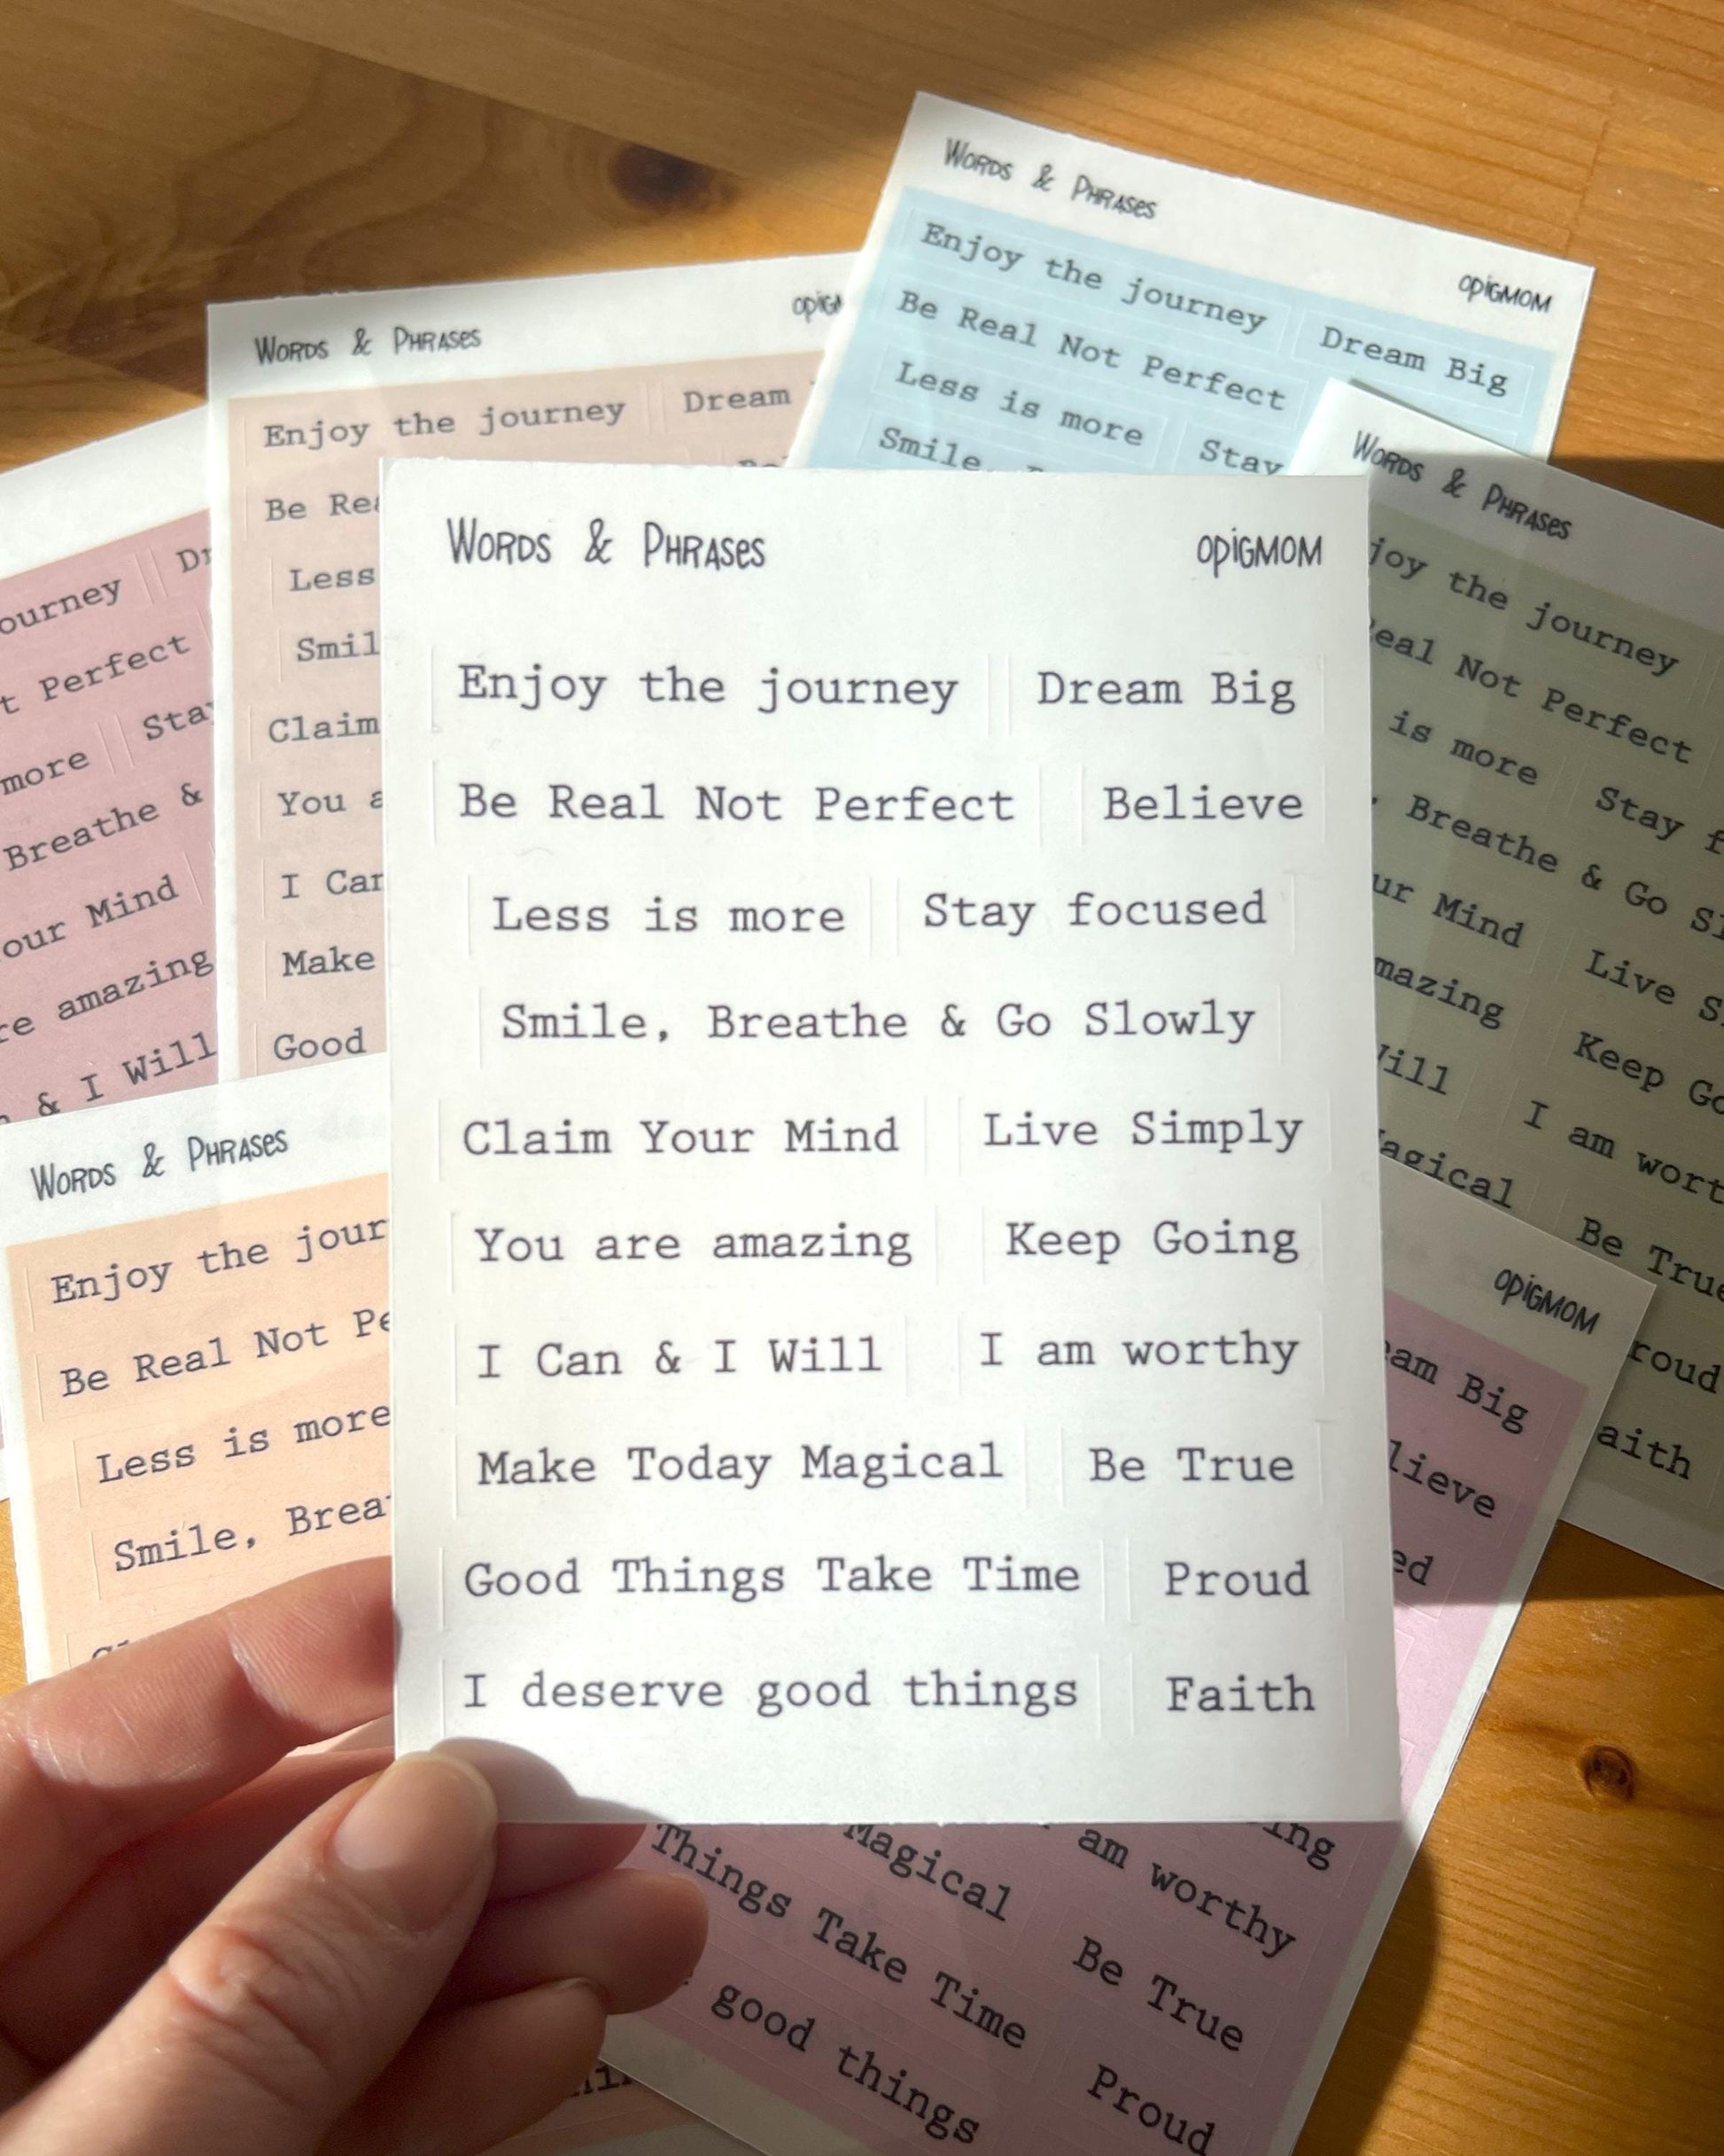 Words & Phrases
opigmom
Enjoy the journey Dream Big
Be Real Not Perfect
Less is more Stay
Smile,
Words & Phrases
Enjoy the journey Dream
Be
Less
Claim
You
I
Make
Good
Words & Phrases
the journey
Not Perfect
is more Stay
Breathe & Go
Mind Live
Keep
I am
Be True
Perfect
more
Breathe &
Mind
amazing
& I Will
Words & Phrases opigmom
Enjoy the journey Dream Big
Be Real Not Perfect Believe
Less is more Stay focused
Smile, Breathe & Go Slowly
Claim Your Mind Live Simply
You are amazing Keep Going
I Can & I Will I am worthy
Make Today Magical Be True
Good Things Take Time Proud
I deserve good things Faith
Words & Phrases
Enjoy the
Be Real Not
Less is more
Smile,
opigmom
Big
am worthy
Magical Be True
Things Take Time Proud
good things